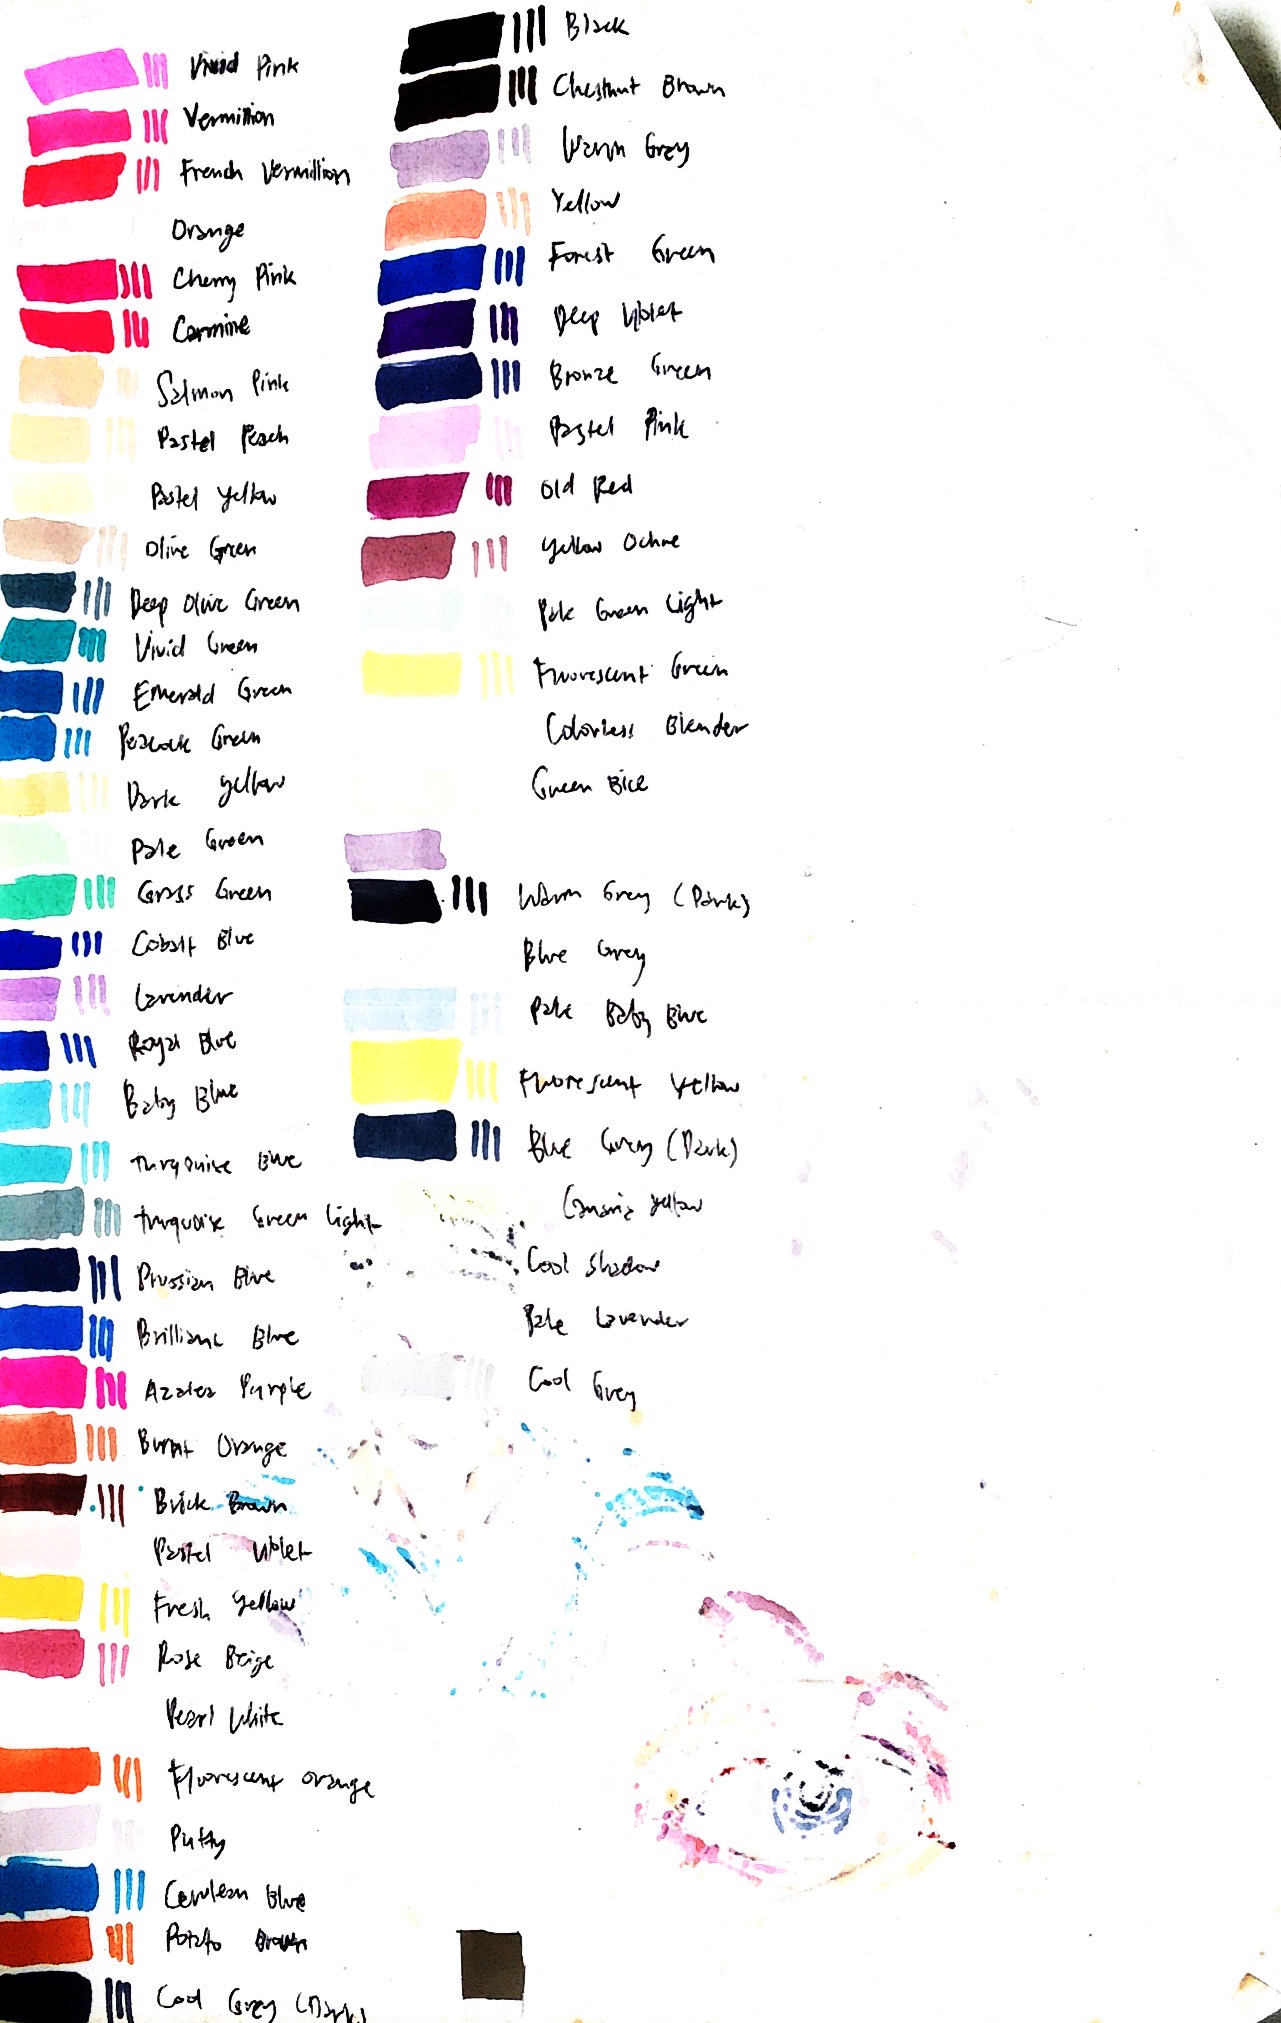 Vivid Pink
Vermillion
French Vermillion
Orange
Cherry Pink
Carmine
Salmon Pink
Pastel Peach
Pastel Yellow
Olive Green
Deep Olive Green
Vivid Green
Emerald Green
Peacock Green
Dark Yellow
Pale Green
Grass Green
Cobalt Blue
Lavender
Royal Blue
Baby Blue
Turquoise Blue
Turquoise Green Light
Prussian Blue
Brilliant Blue
Azalea Purple
Burnt Orange
Brick Brown
Pastel Violet
Fresh Yellow
Rose Beige
Pearl White
Fluorescent Orange
Putty
Cerulean Blue
Potato Brown
Cool Grey (Dark)
Black
Chestnut Brown
Warm Grey
Yellow
Forest Green
Deep Violet
Bronze Green
Pastel Pink
Old Red
Yellow Ochre
Pale Green Light
Fluorescent Green
Colorless Blender
Green Bice
Warm Grey (Dark)
Blue Grey
Pale Baby Blue
Fluorescent Yellow
Blue Grey (Dark)
Canaria Yellow
Cool Shadow
Pale Lavender
Cool Grey